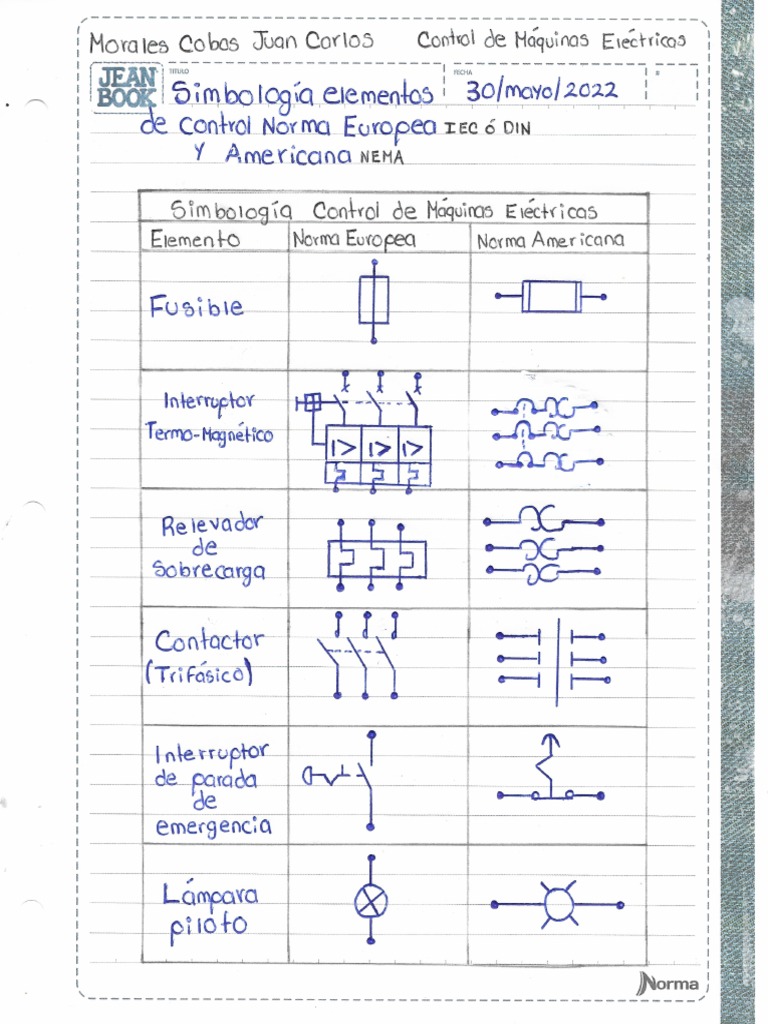 Morales Cobos Juan Carlos Control de Máquinas Eléctricas
JEAN BOOK
TITULO
FECHA
Simbología elementos 30/mayo/2022
de control Norma Europea IEC ó DIN
Y Americana NEMA
Simbología Control de Máquinas Eléctricas
Elemento Norma Europea Norma Americana
Fusible
Interruptor
Termo-Magnético
I> I> I>
Relevador
de
sobrecarga
Contactor
(Trifásico)
Interruptor
de parada
de
emergencia
Lámpara
piloto
Norma